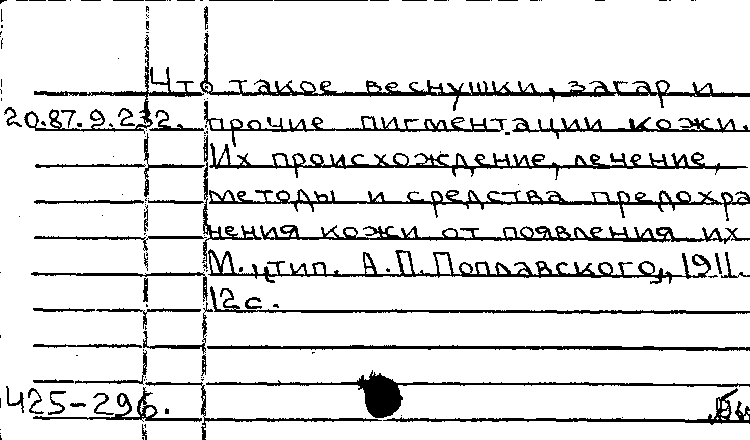 Что такое веснушки, загар и
20.87.9.232. прочие пигментации кожи.
Их происхождение, лечение,
методы и средства предохра
нения кожи от появления их
М. „тип. А.П. Поплавского„, 1911.
12 с.
425-296.